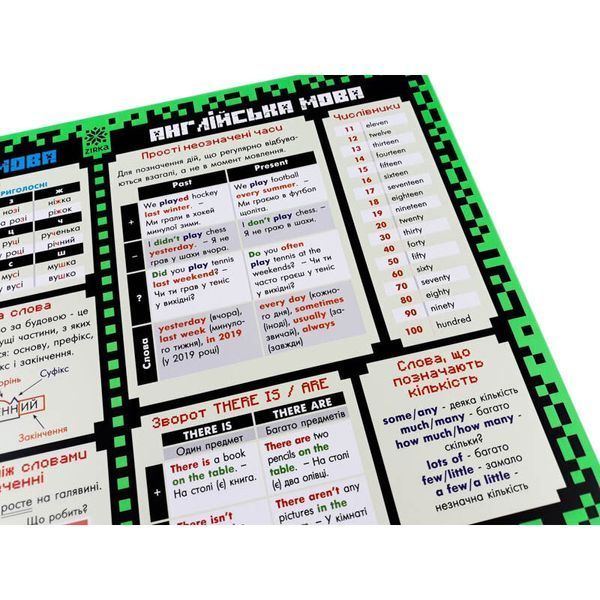 МОВА
ZIRKA
АНГЛІЙСЬКА МОВА
ПРИГОЛОСНІ
з
ж
нозі
ніжка
на розі
ріжок
ц
ч
руці
рученька
у році
річний
с
ш
мусі
мушка
у вусі
вушко
слова
за будовою - це
частини, з яких
основу, префікс,
і закінчення.
Суфікс
ЕННИЙ
Закінчення
між словами
реченні
росте на галявині.
Що робить?
Прості неозначені часи
Для позначення дій, що регулярно відбува-
ються взагалі, а не в момент мовлення.
Past
Present
+
We played hockey
last winter. –
Ми грали в хокей
минулої зими.
We play football
every summer. –
Ми граємо в футбол
щоліта.
–
I didn't play chess
yesterday. – Я не
грав у шахи вчора.
I don't play chess. –
Я не граю в шахи.
?
Did you play tennis
last weekend? –
Чи ти грав у теніс
у вихідні?
Do you often
play tennis at the
weekends? – Чи ти
часто граєш у теніс
у вихідні?
Слова
yesterday (вчора),
last week (минуло-
го тижня), in 2019
(у 2019 році)
every day (кожно-
го дня), sometimes
(іноді), usually (за-
звичай), always
(завжди)
Числівники
11 eleven
12 twelve
13 thirteen
14 fourteen
15 fifteen
16 sixteen
17 seventeen
18 eighteen
19 nineteen
20 twenty
30 thirty
40 forty
50 fifty
60 sixty
70 seventy
80 eighty
90 ninety
100 hundred
Зворот THERE IS / ARE
THERE IS
THERE ARE
Один предмет
Багато предметів
+
There is a book
on the table. –
На столі (є) книга.
There are two
pencils on the
table. – На столі
(є) два олівці.
There isn't
There aren't any
pictures in the
– У кімнаті
Слова, що
позначають
кількість
some/any - деяка кількість
much/many - багато
how much/how many -
скільки?
lots of - багато
few/little - замало
a few/a little -
незначна кількість